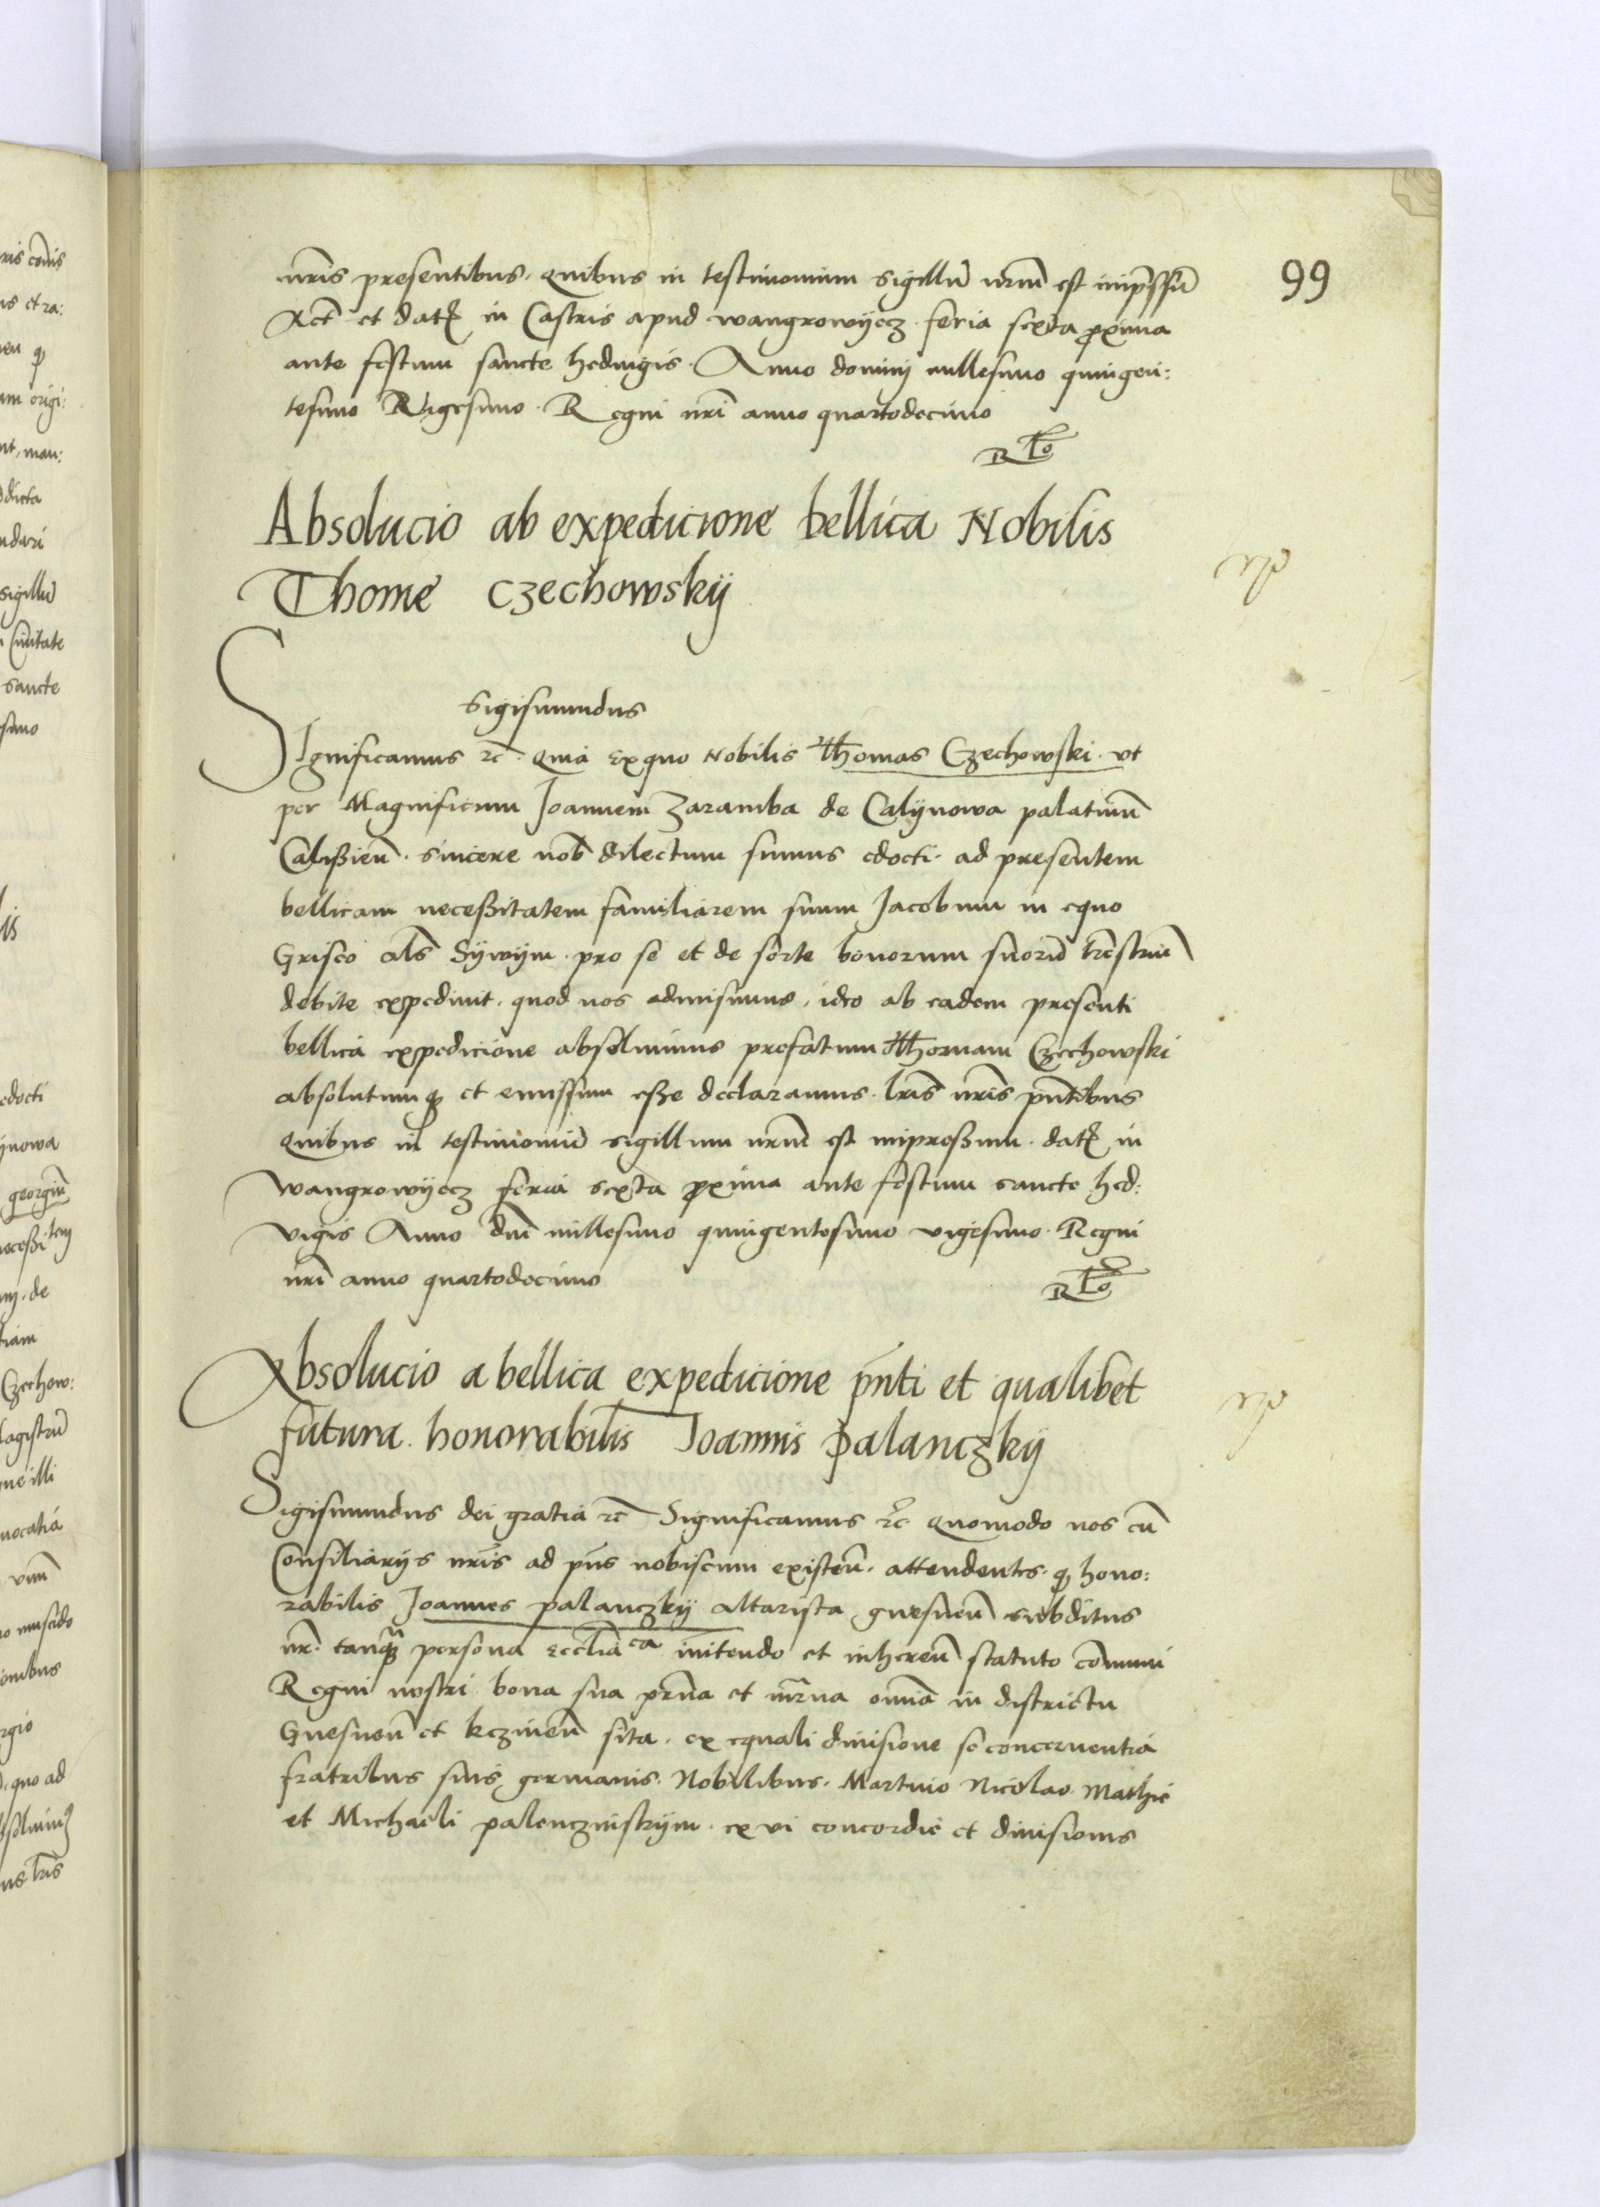 99
nrĩs presentibus. quibus in testimonium sigillũ nrũm est imp̃ssũ
Act̃ et datȝ in Castris apud wangrowijecz feria sexta proxima
ante festum sancte hedwigis. Anno dominj millesimo quingen:
tesimo Vigesimo. Regni nrĩ anno quartodecimo
Absolucio ab expedicione bellica Nobilis
Thome Czechowskij
Sigismundus
Significamus ꝛc̃. quia Exquo Nobilis Thomas Czechowski. vt
per Magnificum Joannem Zaramba de Calijnowa palatinũ
Calißieñ. sincere nob̃ dilectum sumus edocti. ad presentem
bellicam neceßitatem familiarem suum Jacobum in equo
Griseo als̃ Sijwijm. pro se et de sorte bonorum suorũ tr̃estriũ
debite expediuit. quod nos admisimus. ideo ab eadem presenti
bellica expedicione absoluimus prefatum Thomam Czechowski
absolutumqȝ et emissum eße declaramus. lrĩs nrĩs pñtibus
quibus in testimoniũ sigillum nrũm est impreßum. datȝ in
wangrowijecz feria sexta proxima ante festum sancte hed:
vigis Anno dñi millesimo quingentesimo vigesimo. Regni
nrĩ anno quartodecimo
Absolucio a bellica expedicione pñti et qualibet
futura. honorabilis Joannis palanczkij
Sigismundus dei gratia ꝛc̃ Significamus ꝛc̃ quomodo nos cũ
Consiliarijs nrĩs ad pñs nobiscum existeñ. attendentes. qȝ hono:
rabilis Joannes palanczkij altarista gnesneñ subditus
nr̃. tanqȝ persona eccl̃iaca initendo et inhereñ statuto com̃uni
Regni nostri bona sua pr̃na et mr̃na omĩa in districtu
Gnesneñ et kczineñ sita. ex equali diuisione se concernentia
fratribus suis germanis. Nobilibus. Martino Nicolao Mathie
et Michaeli palenczinskijm. ex vi concordie et diuisionis